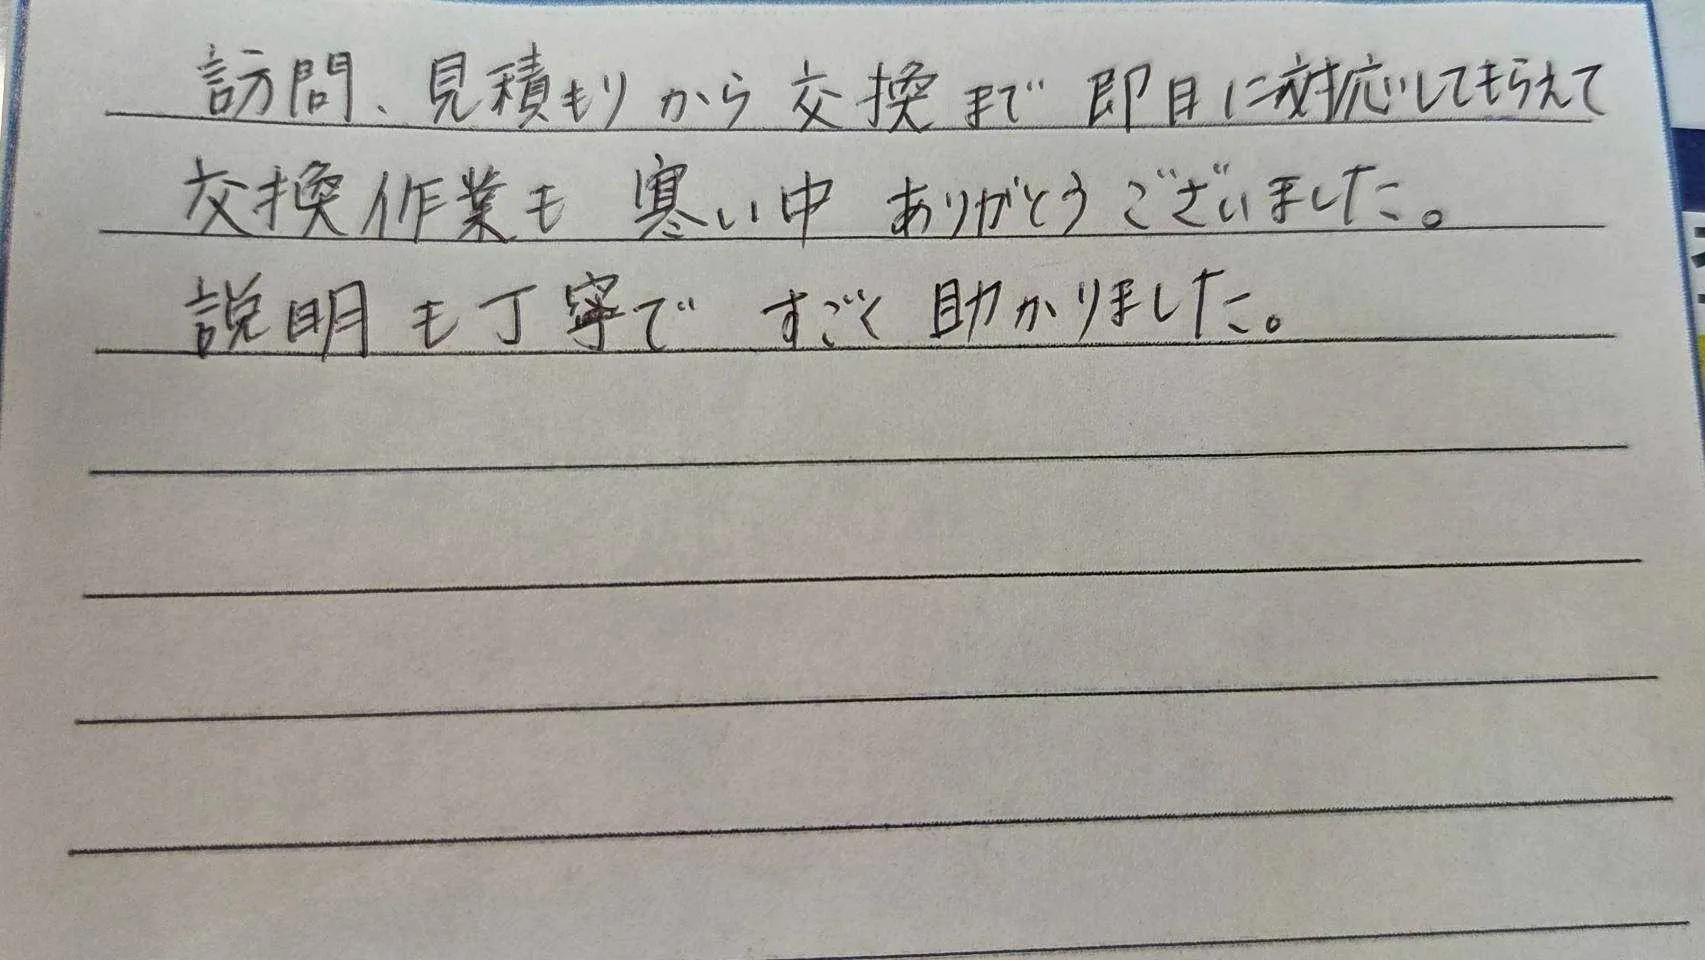 訪問、見積もりから交換まで即日に対応してもらえて
交換作業も寒い中ありがとうございました。
説明も丁寧ですごく助かりました。